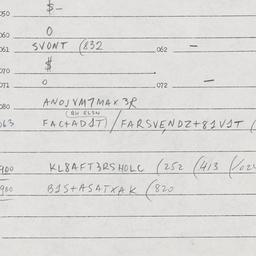 050 $–
060 O
061 SVONT (832 .062 –
070 $
071 O .072 –
080 ANOJVM7MAX 3R
(BH ELSN
063 FAC+ADJT)/FARSVENDZ+81VJT (
900 KL8AFT3RSHOLC (252 (413 (/02
980 B1S+ASATXAK (820